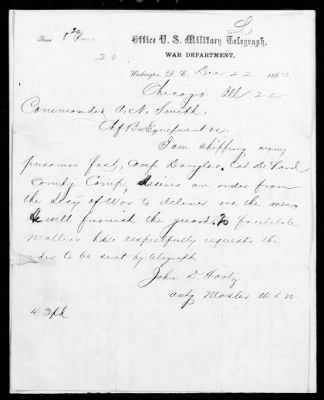 Time 8 30 Pm
Office U. S. Military Telegraph,
WAR DEPARTMENT.
Washington, D. C. Dec 22 1863
Chicago Ill 22
Commander A. N. Smith.
Chf Bu Equipment &c.
I am shipping many
prisoners fast, Camp Douglas. Col de Land
Comdg Camp, desires an order from
the Secy of War to deliver me the men
He will furnish the guard. To facilitate
matters he respectfully requests the
order to be sent by telegraph
John D. Harty
actg Master U S N
43 pd